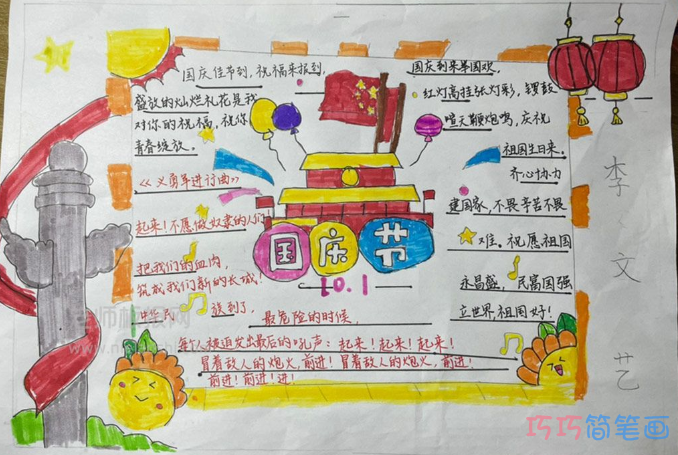 国庆佳节到,祝福来报到,
盛放的灿烂礼花是我
对你的祝福,祝你
青春绽放。
《义勇军进行曲》
起来!不愿做奴隶的人们
把我们的血肉,
筑成我们新的长城!
中华民 族到了,
最危险的时候,
每个人被迫发出最后的吼声:起来!起来!起来!
冒着敌人的炮火,前进!冒着敌人的炮火,前进!
前进!前进!进!
国庆节
10.1
国庆到来举国欢,
红灯高挂张灯彩,锣鼓
喧天鞭炮鸣,庆祝
祖国生日来。
齐心协力
建国家,不畏辛苦不畏
难。祝愿祖国
永昌盛,民富国强
立世界,祖国好!
李文艺
巧巧简笔画